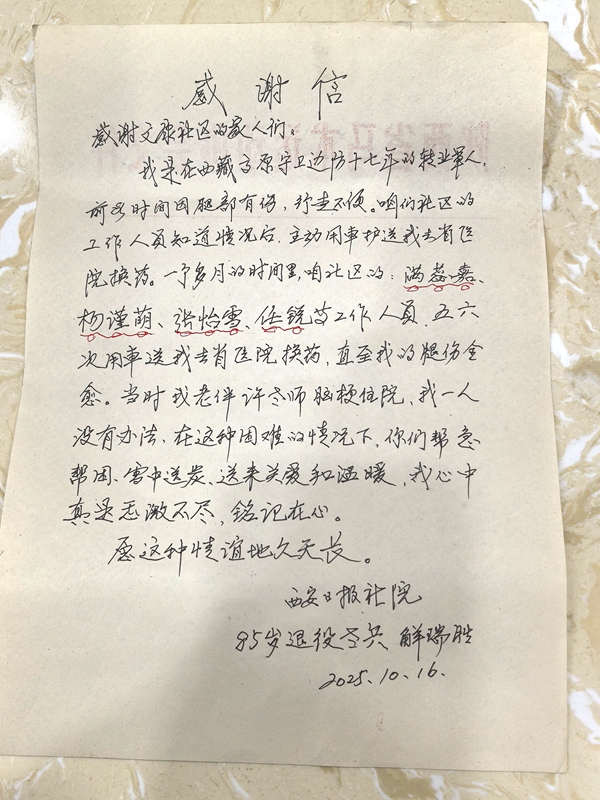 感谢信
感谢文康社区的家人们。
我是在西藏高原守卫边防十七年的转业军人，
前多时间因腿部有伤，行走不便。咱们社区的
工作人员知道情况后，主动用車护送我去省医
院换药。一个多月的时间里，咱社区的：蕊嘉、
杨谨萌、张怡雪、任锐等工作人员，五六
次用車送我去省医院换药，直至我的腿伤全
愈。当时我老伴许冬师脑梗住院，我一人
没有办法，在这种困难的情况下，你们帮急
帮困、雪中送炭、送来关爱和温暖，我心中
真是感激不尽，铭记在心。
愿这种情谊地久天长。
西安日报社院
85岁退役老兵 解瑞胜
2025.10.16.